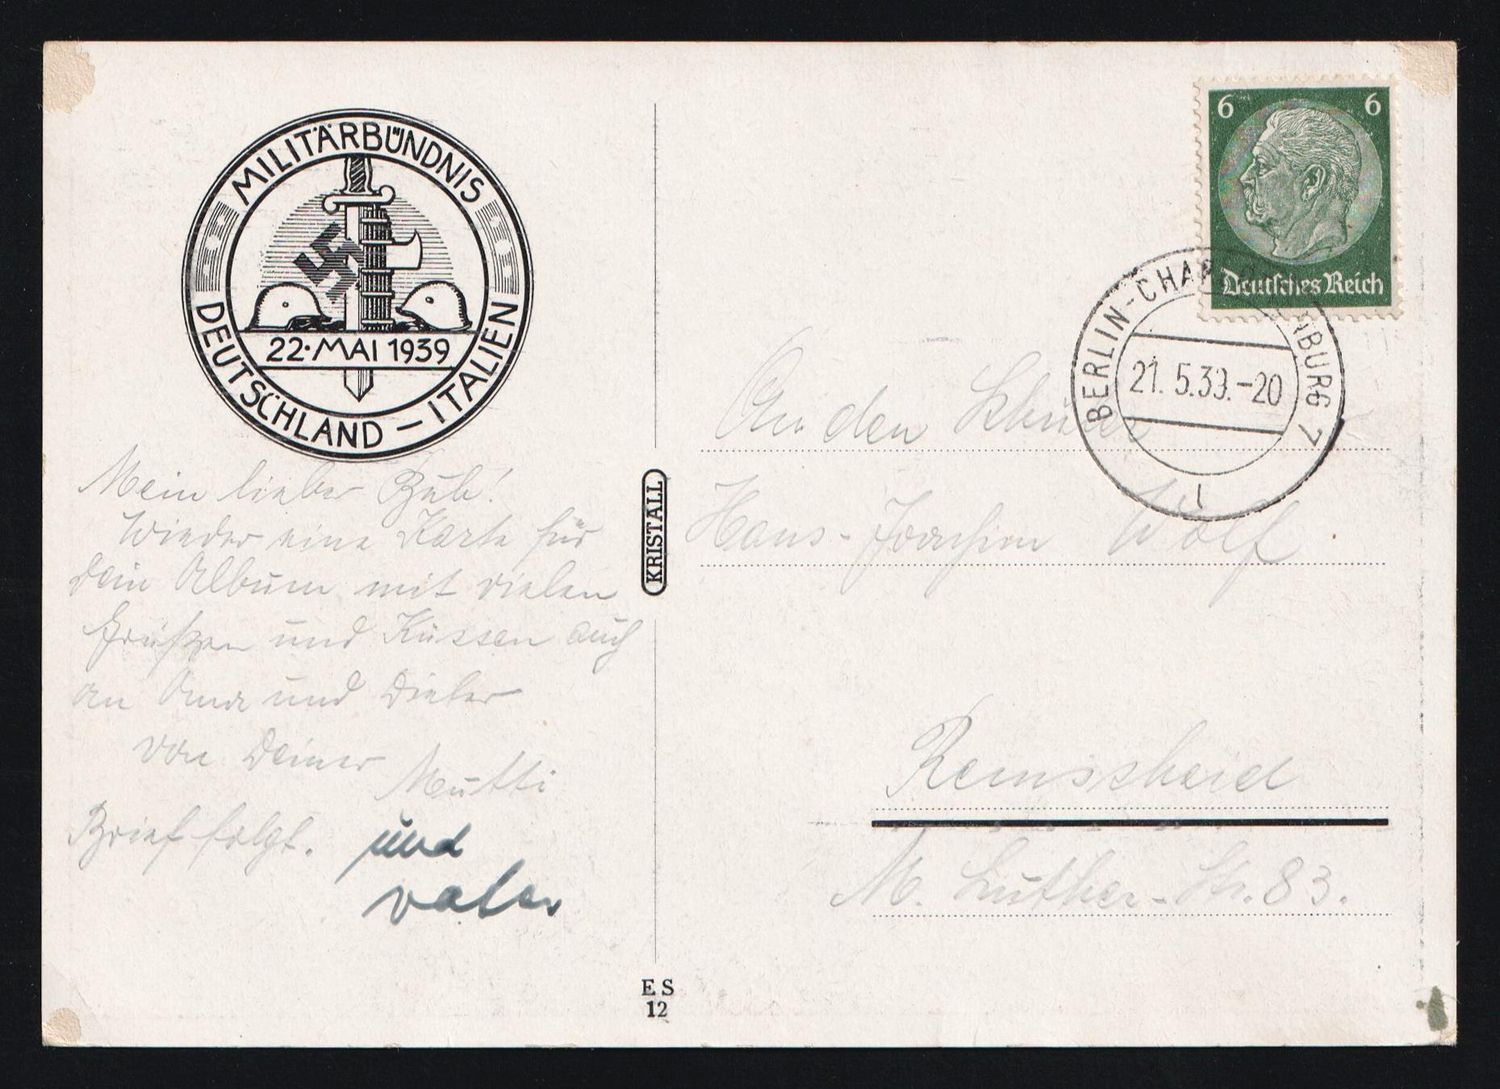 MILITÄRBÜNDNIS
22·MAI 1939
DEUTSCHLAND – ITALIEN
6 6
Deutsches Reich
BERLIN-CHARLOTTENBURG 7
21.5.39.-20
l
Mein lieber Bub!
Wieder eine Karte für
Dein Album mit vielen
Grüßen und Küssen auch
an Oma und Dieter
von Deiner
Mutti
Brief folgt. und
Vater
KRISTALL
E S
12
An den Schüler
Hans-Joachim Wolf
Remscheid
M. Luther-Str. 83.